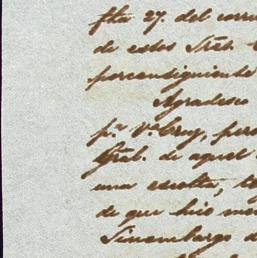 fha 27. del corr
de estos Sres.
porconsiguiente
Agradesco
pr. Va.Cruz, per
Gral. de aquel
una escolta,
de que hizo me
Sinembargo d